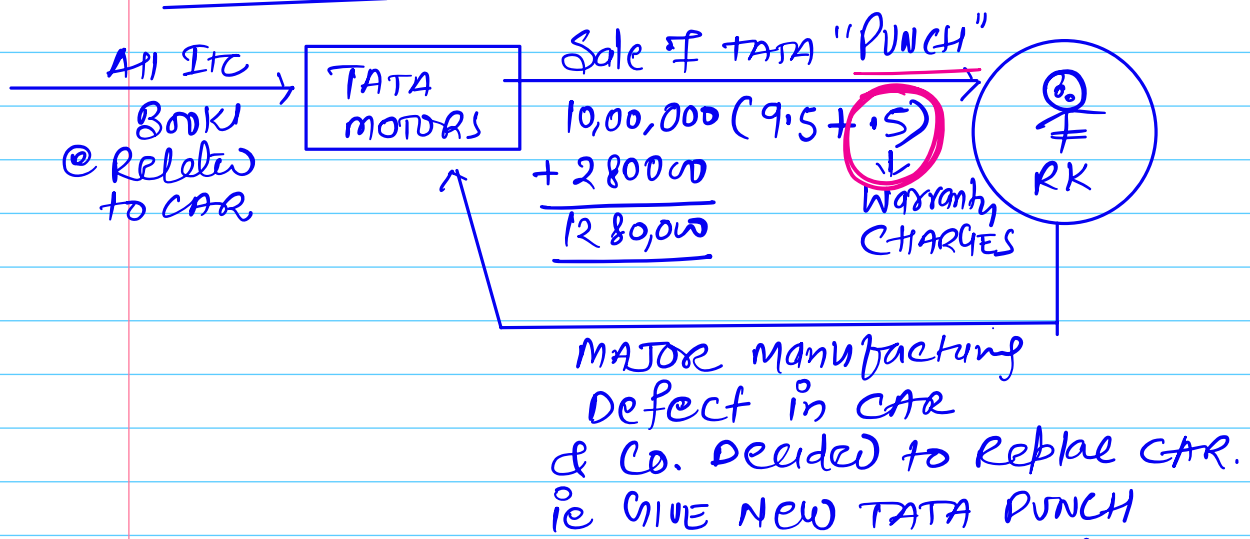 All ITC
Book!
@ Related
to CAR
TATA
MOTORS
Sale of TATA "PUNCH"
10,00,000 (9.5 + .5)
+ 280000
1280,000
Warranty
CHARGES
RK
MAJOR Manufacturing
Defect in CAR
& Co. Decided to Replace CAR.
ie GIVE NEW TATA PUNCH